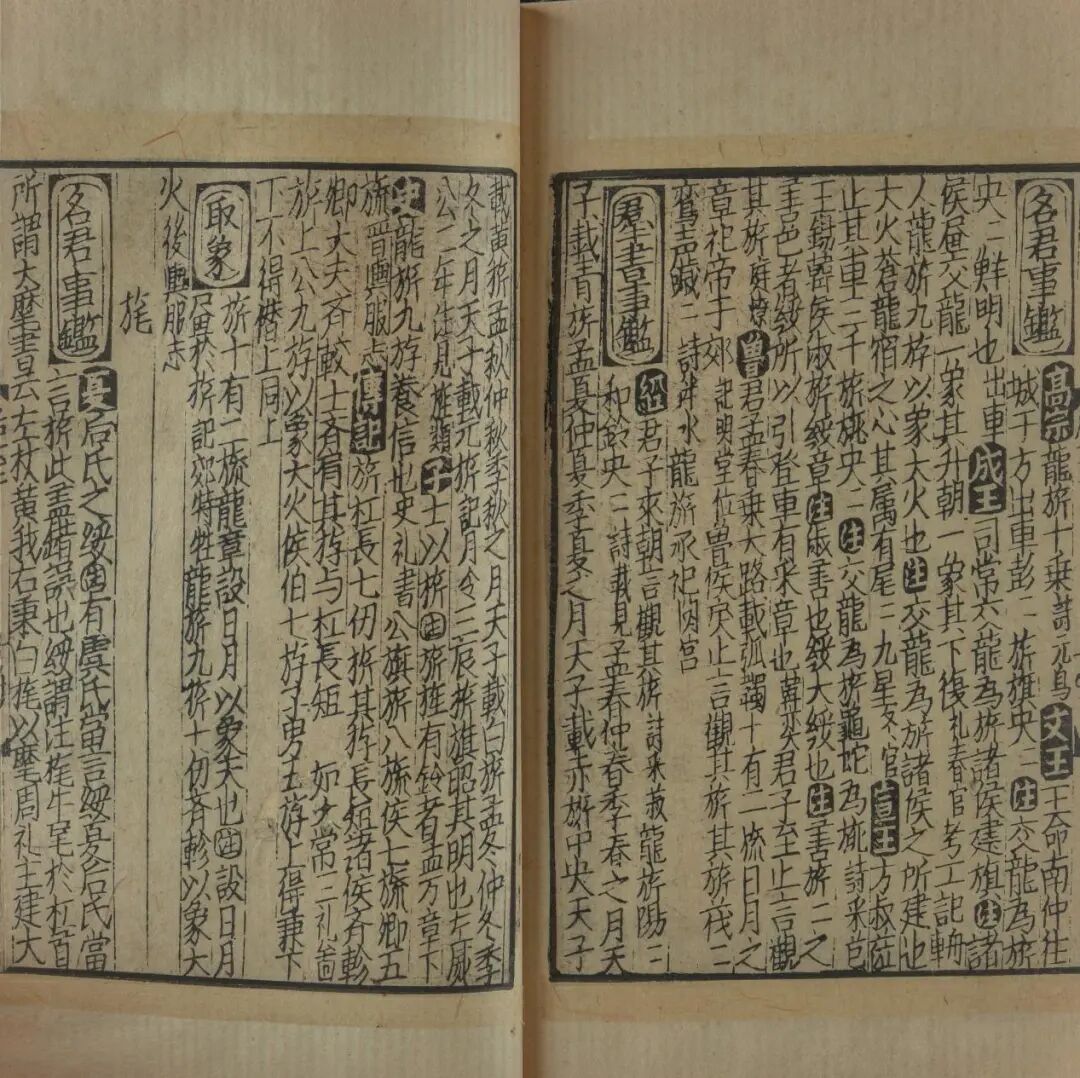 名君事鑑 高宗龍旂十乗詩玄鳥文王王命南仲往
城于方出車彭〻旂旗央〻注交龍為旂
央〻鮮明也出車成王司常交龍為旂諸侯建旗注諸
侯畫交龍一象其升朝一象其下復礼春官考工記輈
人龍旂九斿以象大火也注交龍為旂諸侯之所建也
大火蒼龍宿之心其属有尾〻九星冬官宣王方叔蒞
止其車三千旂旐央〻注交龍為旂龜蛇為旐詩采芑
王錫韓侯淑旂綏章注淑善也綏大綏也注善旂〻之
善色者綏所以引登車有采章也韓奕君子至止言觀
其旂庭燎魯君孟春乗大路載弧韣十有二旒日月之
章祀帝于郊記明堂位魯侯戾止言觀其旂其旂茷〻
鸞声鏚〻詩泮水龍旂承祀閟宫
羣書事鑑 經君子來朝言觀其旂詩采菽龍旂陽〻
和鈴央〻詩載見孟春仲春季春之月天
子載青旂孟夏仲夏季夏之月天子載赤旂中央天子
載黄旂孟秋仲秋季秋之月天子載白旂孟冬仲冬季
冬之月天子載元旂記月令三辰旂旗昭其明也左威
公二年注見旌類子士以旂注旂旌有鈴者孟万章下
史龍旂九斿養信也史礼書公旗旂八旒侯七旒卿五
旒晋輿服志傳記旂杠長七仞旂其斿長短諸侯斉軫
卿大夫斉較士斉有其斿与杠長短如大常三礼啚
旂上公九斿以象大火侯伯七斿子男五斿上得兼下
丁不得僣上同上
取象 旂十有二旒龍章設日月以象天也注設日月
畫於旂記郊特牲龍旂九旂十仞斉軫以象大
火後輿服志
旄
名君事鑑 夏后氏之綏注有虞氏當言綏夏后氏當
言旂此盖錯誤也綏謂注旄牛尾於杠首
所謂大麾書云左杖黄鉞右秉白旄以麾周礼王建大